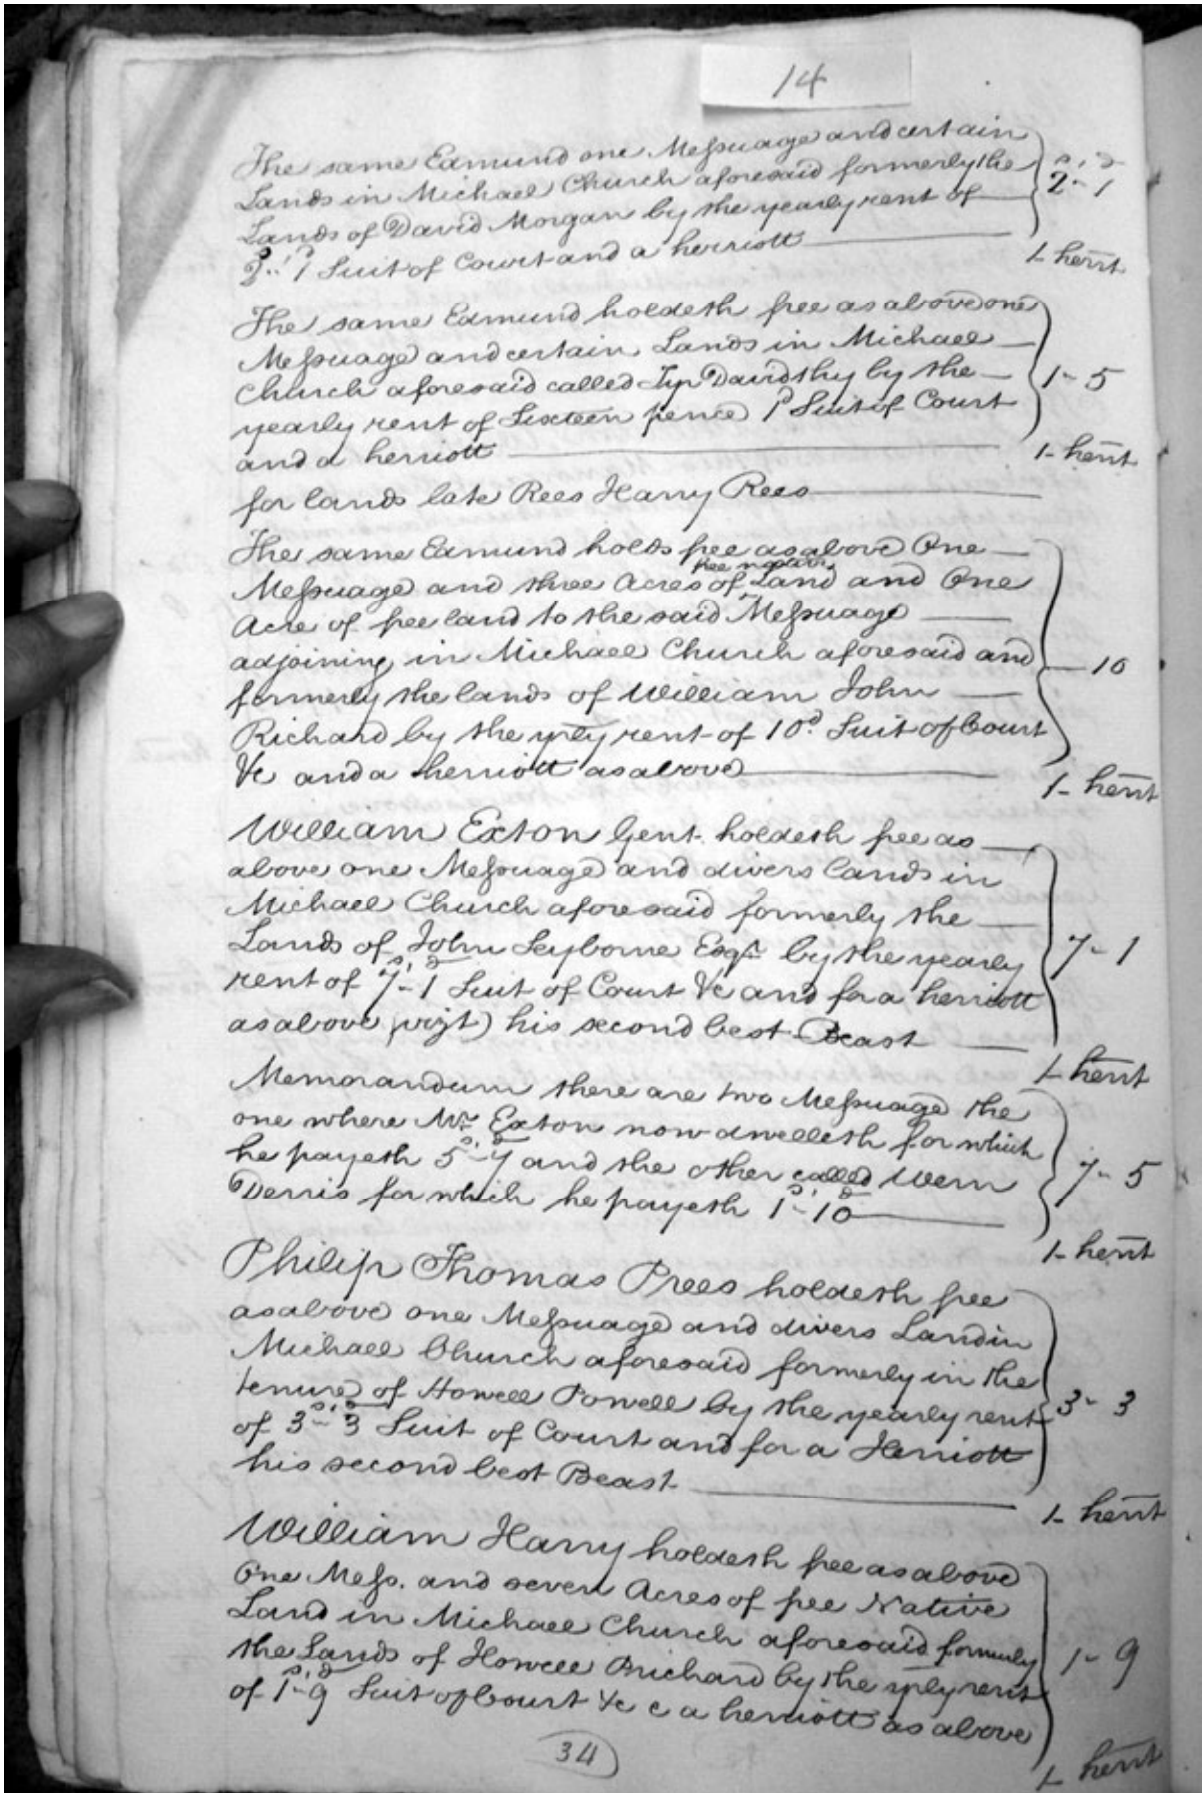 14
The same Edmund one Messuage and certain
Lands in Michael Church aforesaid formerly the
Lands of David Morgan by the yearly rent of
2s..1d Suit of Court and a herriott
s, d
2 - 1
1- herrt
The same Edmund holdeth free as above one
Messuage and certain Lands in Michael
Church aforesaid called Tyr Davidthy by the
yearly rent of Sixteen pence 1d Suit of Court
and a herriott
1 - 5
1- herrt
for lands late Rees Harry Rees
The same Edmund holds free as above One
free native
Messuage and three Acres of Land and One
Acre of free land to the said Messuage
adjoining in Michael Church aforesaid and
formerly the lands of William John
Richard by the yrly rent of 10d. Suit of Court
&c and a herriott as above
10
1- herrt
William Exton Gent. holdeth free as
above one Messuage and divers lands in
Michael Church aforesaid formerly the
Lands of John Seyborne Esqr. by the yearly
rent of 7s,-1d Suit of Court &c and for a herriott
as above (vizt) his second best Beast
7 - 1
1- herrt
Memorandum there are two Messuage the
one where Mr. Exton now dwelleth for which
he payeth 5s,-7d and the other called Wern
Derris for which he payeth 1s,-10d
7 - 5
1- herrt
Philip Thomas Prees holdeth free
as above one Messuage and divers Land in
Michael Church aforesaid formerly in the
tenure of Howell Powell by the yearly rent
of 3s,-3d Suit of Court and for a Herriott
his second best Beast
3 - 3
1- herrt
William Harry holdeth free as above
One Mess. and seven Acres of free Native
Land in Michael Church aforesaid formerly
the Lands of Howell Prichard by the yrly rent
of 1s,-9d Suit of Court &c & a herriott as above
1 - 9
1- herrt
34